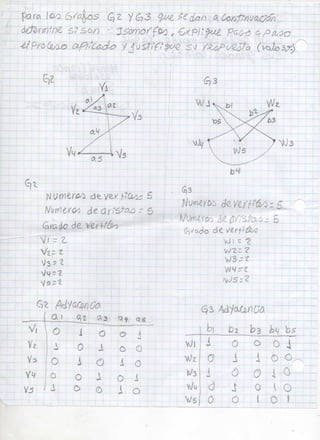 para los Grafos G2 y G3 que se dan a continuación
determine si son Isomorfos, explique paso a paso
el proceso aplicado y justifique su respuesta (valo 3x)
G2
G3
V1
a1
a3
a2
V2
V3
a4
V4
a5
V5
W1
b1
W2
b2
b5
b3
W4
W5
W3
b4
G2
Numeros de vertices = 5
Numeros de aristas = 5
Grado de vertices
V1 = 2
V2 = 2
V3 = 2
V4 = 2
V5 = 2
G3
Numeros de vertices = 5
Numeros de aristas = 5
Grado de vertices
W1 = 2
W2 = 2
W3 = 2
W4 = 2
W5 = 2
G2 Adyacencia
a1 a2 a3 a4 a5
V1 0 1 0 0 1
V2 1 0 1 0 0
V3 0 1 0 1 0
V4 0 0 1 0 1
V5 1 0 0 1 0
G3 Adyacencia
b1 b2 b3 b4 b5
W1 1 0 0 0 1
W2 0 1 1 0 0
W3 1 0 0 1 0
W4 0 1 0 1 0
W5 0 0 1 0 1